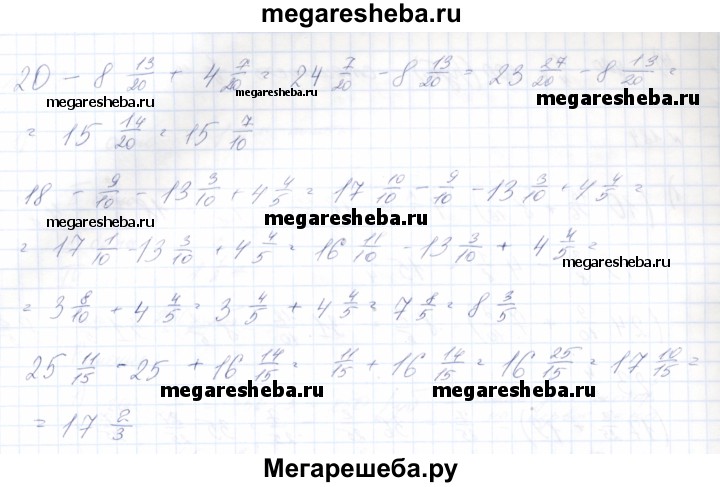 megaresheba.ru
20 - 8 13/20 + 4 7/20 = 24 7/20 - 8 13/20 = 23 27/20 - 8 13/20 =
megaresheba.ru megaresheba.ru megaresheba.ru
= 15 14/20 = 15 7/10
18 - 9/10 - 13 3/10 + 4 4/5 = 17 10/10 - 9/10 - 13 3/10 + 4 4/5 =
megaresheba.ru megaresheba.ru
= 17 1/10 - 13 3/10 + 4 4/5 = 16 11/10 - 13 3/10 + 4 4/5 =
megaresheba.ru
= 3 8/10 + 4 4/5 = 3 4/5 + 4 4/5 = 7 8/5 = 8 3/5
25 11/15 - 25 + 16 14/15 = 11/15 + 16 14/15 = 16 25/15 = 17 10/15 =
megaresheba.ru megaresheba.ru
= 17 2/3
Мегарешеба.ру